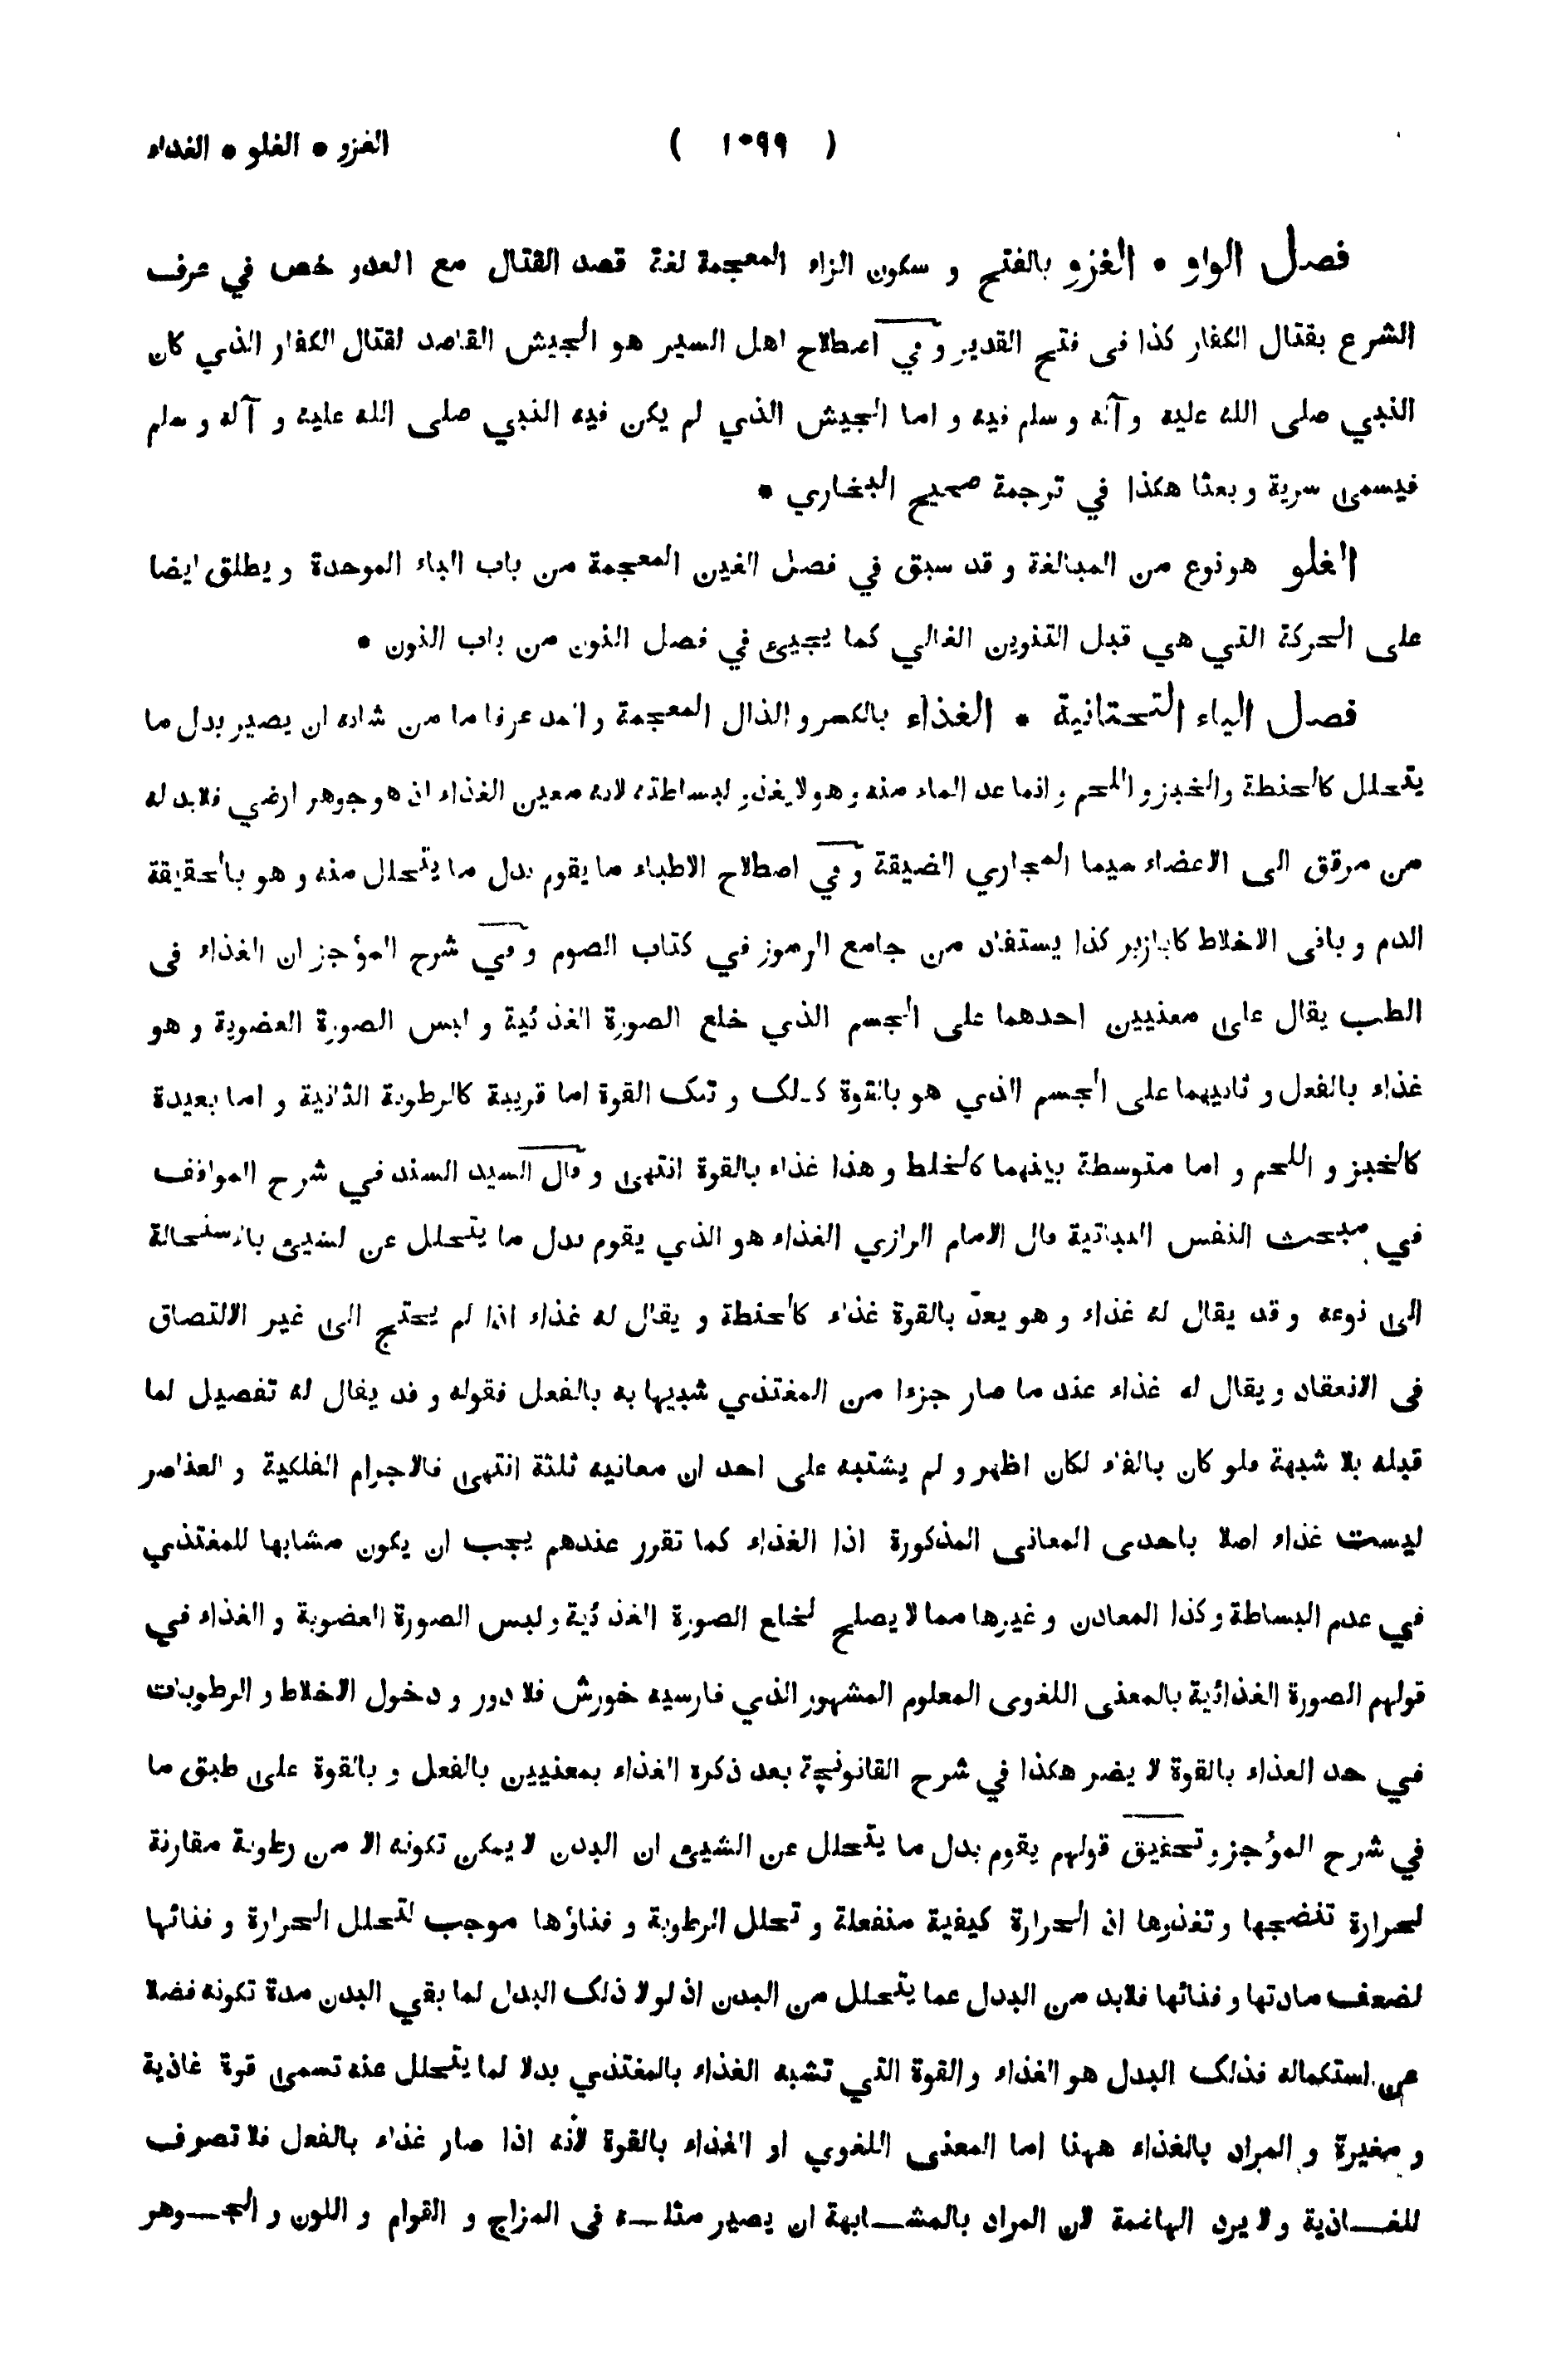 ( ١٠٩٩ ) الغزو * الغلو * الغذاء
فصل الواو * الغزو بالفتح و سكون الزاء المعجمة لغة قصد القتال مع العدو خص في عرف
الشرع بقتال الكفار كذا فى فتح القدير و في اصطلاح اهل السير هو الجيش القاصد لقتال الكفار الذي كان
النبي صلى الله عليه و آله و سلم فيه و اما الجيش الذي لم يكن فيه النبي صلى الله عليه و آله و سلم
فيسمى سرية و بعثا هكذا في ترجمة صحيح البخاري *
الغلو هو نوع من المبالغة و قد سبق في فصل الغين المعجمة من باب الباء الموحدة و يطلق ايضا
على الحركة التي هي قبل التنوين الغالي كما يجيئ في فصل النون من باب النون *
فصل الياء التحتانية * الغذاء بالكسر و الذال المعجمة و المد عرفا ما من شانه ان يصير بدل ما
يتحلل كالحنطة والخبز و اللحم و انما عد الماء منه و هو لا يغذو لبساطته لانه معين الغذاء اذ هو جوهر ارضي فلابد له
من مرقق الى الاعضاء سيما المجاري الضيقة و في اصطلاح الاطباء ما يقوم بدل ما يتحلل منه و هو بالحقيقة
الدم و باقى الاخلاط كابازير كذا يستفاد من جامع الرموز في كتاب الصوم و في شرح المؤجز ان الغذاء فى
الطب يقال على معنيين احدهما على الجسم الذي خلع الصورة الغذائية و لبس الصورة العضوية و هو
غذاء بالفعل و ثانيهما على الجسم الذي هو بالقوة كذلك و تلك القوة اما قريبة كالرطوبة الثانية و اما بعيدة
كالخبز و اللحم و اما متوسطة بينهما كالخلط و هذا غذاء بالقوة انتهى و قال السيد السند في شرح المواقف
في مبحث النفس النباتية قال الامام الرازي الغذاء هو الذي يقوم بدل ما يتحلل عن الشيئ بالاستحالة
الى نوعه و قد يقال له غذاء و هو يعدّ بالقوة غذاء كالحنطة و يقال له غذاء اذا لم يحتج الى غير الالتصاق
فى الانعقاد و يقال له غذاء عند ما صار جزءا من المغتذي شبيها به بالفعل فقوله و قد يقال له تفصيل لما
قبله بلا شبهة فلو كان بالفاء لكان اظهر و لم يشتبه على احد ان معانيه ثلثة انتهى فالاجرام الفلكية و العناصر
ليست غذاء اصلا باحدى المعانى المذكورة اذا الغذاء كما تقرر عندهم يجب ان يكون مشابها للمغتذي
في عدم البساطة و كذا المعادن و غيرها مما لا يصلح لخلع الصورة الغذائية و لبس الصورة العضوية و الغذاء في
قولهم الصورة الغذائية بالمعنى اللغوى المعلوم المشهور الذي فارسيه خورش فلا دور و دخول الاخلاط و الرطوبات
في حد الغذاء بالقوة لا يضر هكذا في شرح القانونچة بعد ذكره الغذاء بمعنيين بالفعل و بالقوة على طبق ما
في شرح المؤجز و تحقيق قولهم يقوم بدل ما يتحلل عن الشيئ ان البدن لا يمكن تكونه الا من رطوبة مقارنة
لحرارة تنضجها و تغذيها اذ الحرارة كيفية منفعلة و تحلل الرطوبة و فناؤها موجب لتحلل الحرارة و فنائها
لضعف مادتها و فنائها فلابد من البدل عما يتحلل من البدن اذ لو لا ذلك البدل لما بقي البدن مدة تكونه فضلا
عن استكماله فذلك البدل هو الغذاء و القوة التي تشبه الغذاء بالمغتذي بدلا لما يتحلل عنه تسمى قوة غاذية
و مغيرة و المراد بالغذاء ههنا اما المعنى اللغوي او الغذاء بالقوة لأنه اذا صار غذاء بالفعل فلا تصرف
للغــاذية و لا يرد الهاضمة لان المراد بالمشــابهة ان يصير مثلــه فى المزاج و القوام و اللون و الجــوهر